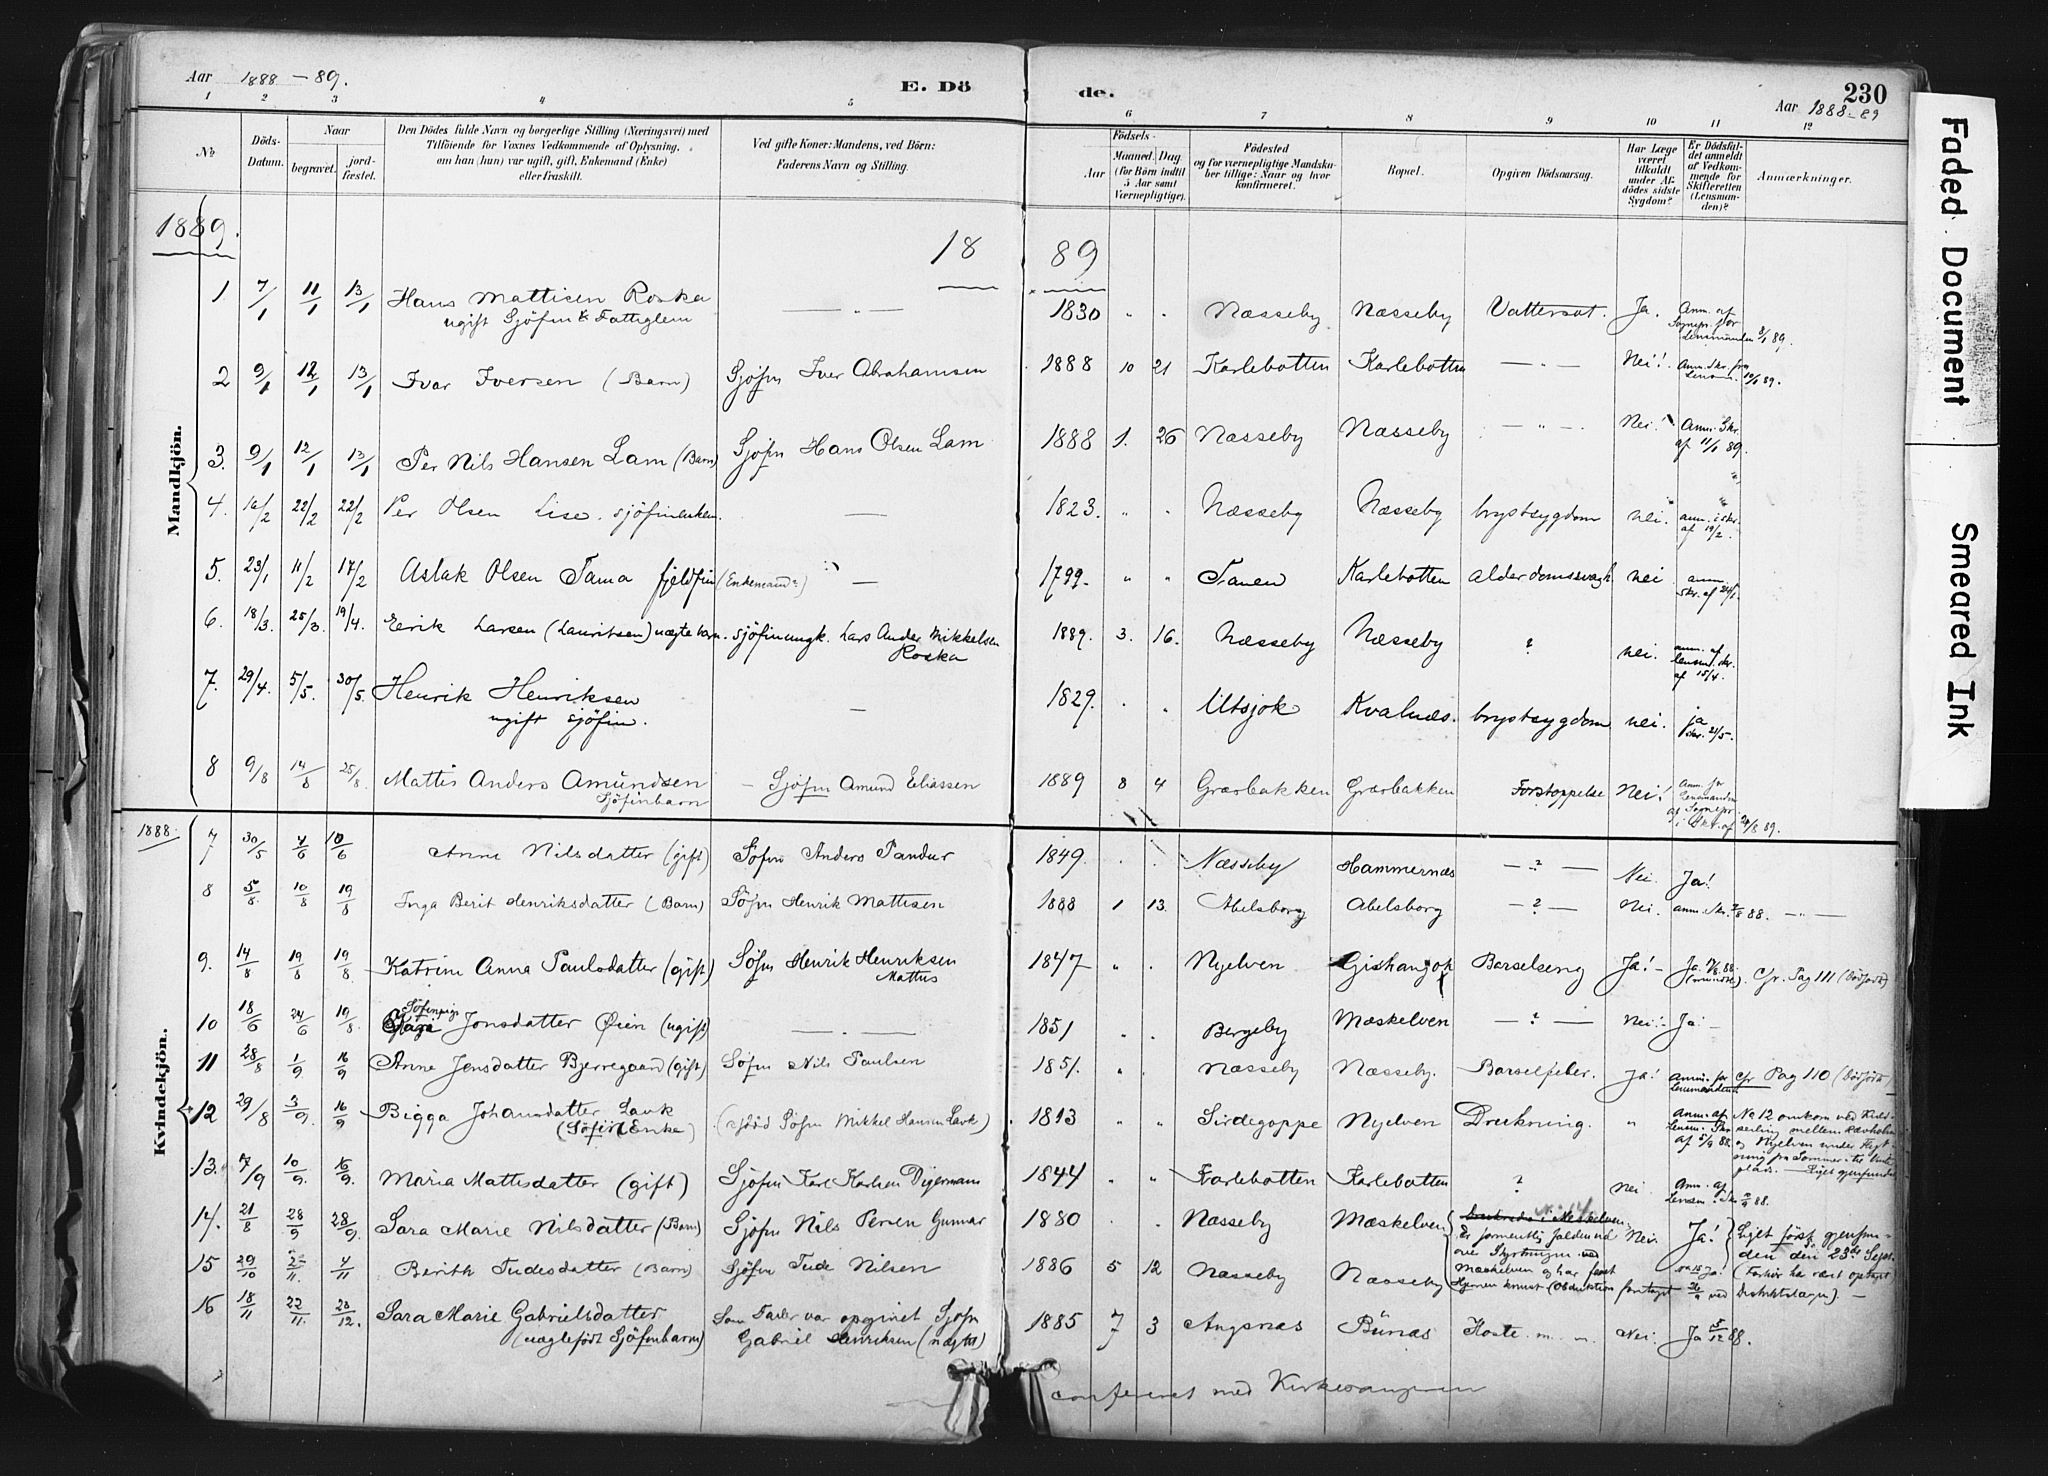 Aar 1888 – 89. E. Dö de. 230
Aar 1888–89
1 2 3 4 5 6 7 8 9 10 11 12
№ Döds-Datum. Naar begravet. jord-fæstet. Den Dödes fulde Navn og borgerlige Stilling (Næringsvei) med Tilföiende for Voxnes Vedkommende af Oplysning, om han (hun) var ugift, gift, Enkemand (Enke) eller fraskilt. Ved gifte Koner: Mandens, ved Börn: Faderens Navn og Stilling. Födsels- Aar Maaned. Dag (for Börn indtil 5 Aar samt Værnepligtige). Födested og for værnepligtige Mandska- ber tillige: Naar og hvor konfirmeret. Bopæl. Opgiven Dödsaarsag. Har Læge været tilkaldt under Af- dödes sidste Sygdom? Er Dödsfal- det anmeldt af Vedkom- mende for Skifteretten (Lensman- den)? Anmærkninger.
1889. 18 89
Mandkjön.
1 7/1 11/1 13/1 Hans Mattisen Roska — " — 1830 " " Næsseby Næsseby Vattersot. Ja. Anm. af
ugift Sjöfin & Fattiglem Sognepr. for
Lensmanden 8/1 89.
2 9/1 12/1 13/1 Ivar Iversen (Barn) Sjöfin Iver Abrahamsen 1888 10 21 Karlebotten Karlebotten — " — Nei! Anm. Skr. fra
Lensm. 10/1 89.
3. 9/1 12/1 13/1 Per Nils Hansen Lam (Barn) Sjöfin Hans Olsen Lam 1888 1. 26 Næsseby Næsseby — " — Nei! Anm. Skr.
af 11/1 89.
4. 16/2 22/2 22/2 Per Olsen Lise. sjöfinenkem. — 1823. " " Næsseby Næsseby brystsygdom nei. anm. i skr.
af 19/2.
5. 23/1 11/2 17/2 Aslak Olsen Tama fjeldfin (Enkemand?) — 1799. " " Tanen Karlebotten alderdomssvagh. nei anm.
skr. af 24/1.
6. 18/3. 25/3. 19/4. Eerik Larsen (Lauritsen) uægte barn. sjöfinungk. Lars Ander Mikkelsen 1889. 3. 16. Næsseby Næsseby ? nei. anm. af
Roska lensm. skr.
af 15/4.
7. 29/4. 5/5. 30/5. Henrik Henriksen — 1829. " " Utsjok Kvalnæs. brystsygdom nei. ja
ugift sjöfin. skr. 21/5.
8 9/8 14/8 25/8. Mattis Anders Amundsen – Sjöfin Amund Eliassen 1889 8 4 Græsbakken Græsbakken Forstoppelse Nei! Anm. for
Sjöfinbarn Lensmanden
af Sognepr.
i Skr. af 24/8 89.
1888
Kvindekjön.
7 30/5 4/6 10/6 Anne Nilsdatter (gift) Söfin Anders Pandur 1849. " " Næsseby Hammernæs — ? — Nei. Ja!
8 5/8. 10/8 19/8 Inga Berit Henriksdatter (Barn) Söfin Henrik Mattisen 1888 1 13. Abelsborg Abelsborg — ? — Nei. anm. Skr. 7/8 88. — " —
9. 14/8 19/8 19/8. Katrine Anna Paulsdatter (gift) Söfin Henrik Henriksen 1847 " " Nyelven Gishangok Barselseng Ja! – Ja. 88. Cfr. Pag 111 (Dödföd.)
Mattus
10 18/6 24/6 19/8. Söfinpige Jonsdatter Øien (ugift) — " — 1851 " " Bergeby Mæskelven — ? — Nei! – Ja! –
11 28/8 1/9 16/9 Anne Jensdatter Bjerregaard (gift) Söfin Nils Paulsen 1851. " " Næsseby Næsseby. Barselfeber. Ja! Anm. for Cfr Pag 110 (Dödföd.)
Lensmanden.
12 29/8 3/9. 16/9 Bigga Johansdatter Lavk (död Söfin Mikkel Hansen Lavk) 1813 " " Sirdegoppe Nyelven Drukning. " Anm. af No 12 omkom ved Kuld-
(Söfin Enke) Lensm. Skr. seiling mellem Revholm
af 5/9 88. og Nyelven under Flyt-
ning fra Sommer- til Vint-
plads. — Liget gjenfundet
13. 7/9 10/9. 16/9. Maria Mattisdatter (gift) Sjöfin Karl Karlsen Digermann 1844 " " Karlebotten Karlebotten ? Nei Anm. af
Lensm. Skr. 88.
14. 21/8 28/9 28/9. Sara Marie Nilsdatter (Barn) Sjöfin Nils Persen Gunnar 1880 Næsseby Mæskelven No 14
Druknede i Meskelven.
Er formentlig falden ud Nei. Ja! Liget först gjenfun-
over Styrtningen ved den den 23de Sept.
Mæskelven og har faaet (Forhör har vært optaget
Hjernen knust (Obduktion foretaget ved Distriktslægen). —
15 29/10 2/11. 4/11 Berith Tudesdatter (Barn) Sjöfin Tude Nilsen 1886 5 12 Næsseby Næsseby
16 18/11 22/11. 23/12. Sara Marie Gabrielsdatter Som Fader var opgivet Sjöfin 1885 7 3 Angsnæs Bunæs Hoste. m. m. Nei. Ja 5/12 88.
(uægtefödt Sjöfinbarn) Gabriel Henriksen (uægte)
conferert med Kirkesangeren
Faded Document
Smeared Ink